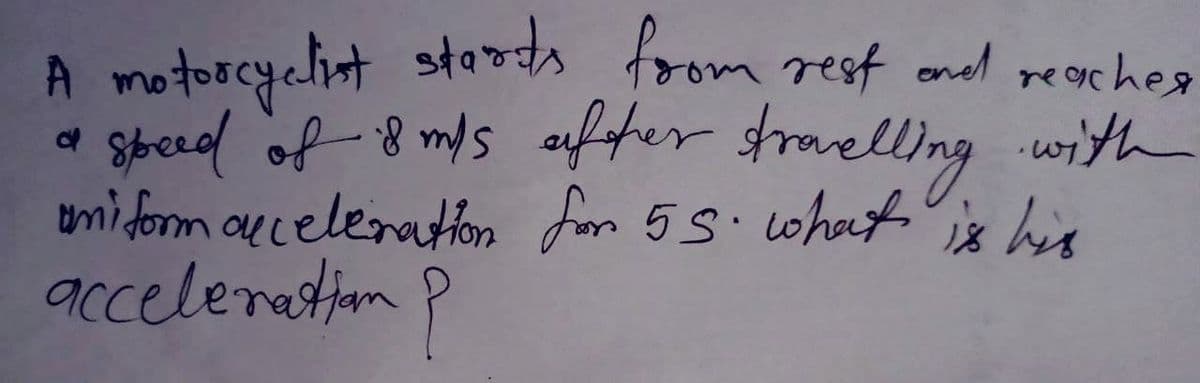 A motorcyclist starts from rest and reaches
a speed of 8 m/s after travelling with
uniform acceleration for 5 s. what is his
acceleration ?